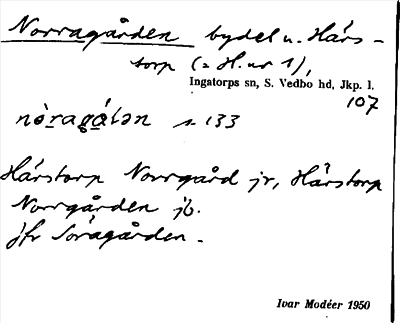 Norragården bydel u. Hårs-
torp (= H. nr 1),
Ingatorps sn, S. Vedbo hd, Jkp. l.
107
nòragálən s. 133
Hårstorp Norrgård jr, Hårstorp
Norrgården jb.
jfr Söragården.
Ivar Modéer 1950